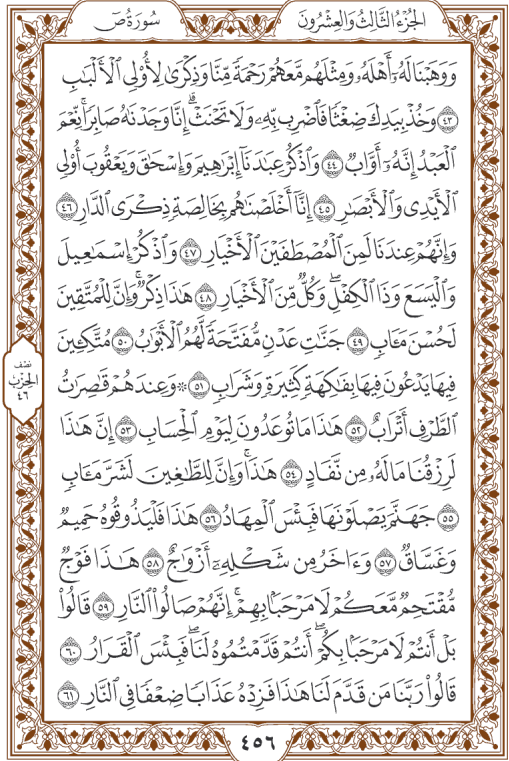 الجُزْءُ الثَّالِثُ وَالعِشْرُونَ
سُورَةُ صٓ
وَوَهَبْنَا لَهُۥٓ أَهْلَهُۥ وَمِثْلَهُم مَّعَهُمْ رَحْمَةً مِّنَّا وَذِكْرَىٰ لِأُوْلِي ٱلْأَلْبَٰبِ
٤٣ وَخُذْ بِيَدِكَ ضِغْثًا فَٱضْرِب بِّهِۦ وَلَا تَحْنَثْ ۗ إِنَّا وَجَدْنَٰهُ صَابِرًا ۚ نِّعْمَ
ٱلْعَبْدُ إِنَّهُۥٓ أَوَّابٌ ٤٤ وَٱذْكُرْ عِبَٰدَنَآ إِبْرَٰهِيمَ وَإِسْحَٰقَ وَيَعْقُوبَ أُوْلِي
ٱلْأَيْدِي وَٱلْأَبْصَٰرِ ٤٥ إِنَّآ أَخْلَصْنَٰهُم بِخَالِصَةٍ ذِكْرَى ٱلدَّارِ ٤٦
وَإِنَّهُمْ عِندَنَا لَمِنَ ٱلْمُصْطَفَيْنَ ٱلْأَخْيَارِ ٤٧ وَٱذْكُرْ إِسْمَٰعِيلَ
وَٱلْيَسَعَ وَذَا ٱلْكِفْلِ ۖ وَكُلٌّ مِّنَ ٱلْأَخْيَارِ ٤٨ هَٰذَا ذِكْرٌ ۚ وَإِنَّ لِلْمُتَّقِينَ
لَحُسْنَ مَـَٔابٍ ٤٩ جَنَّٰتِ عَدْنٍ مُّفَتَّحَةً لَّهُمُ ٱلْأَبْوَٰبُ ٥٠ مُتَّكِـِٔينَ
فِيهَا يَدْعُونَ فِيهَا بِفَٰكِهَةٍ كَثِيرَةٍ وَشَرَابٍ ٥١ ۞ وَعِندَهُمْ قَٰصِرَٰتُ
ٱلطَّرْفِ أَتْرَابٌ ٥٢ هَٰذَا مَا تُوعَدُونَ لِيَوْمِ ٱلْحِسَابِ ٥٣ إِنَّ هَٰذَا
لَرِزْقُنَا مَا لَهُۥ مِن نَّفَادٍ ٥٤ هَٰذَا ۚ وَإِنَّ لِلطَّٰغِينَ لَشَرَّ مَـَٔابٍ
٥٥ جَهَنَّمَ يَصْلَوْنَهَا فَبِئْسَ ٱلْمِهَادُ ٥٦ هَٰذَا فَلْيَذُوقُوهُ حَمِيمٌ
وَغَسَّاقٌ ٥٧ وَءَاخَرُ مِن شَكْلِهِۦٓ أَزْوَٰجٌ ٥٨ هَٰذَا فَوْجٌ
مُّقْتَحِمٌ مَّعَكُمْ لَا مَرْحَبًۢا بِهِمْ ۚ إِنَّهُمْ صَالُوا۟ ٱلنَّارِ ٥٩ قَالُوا۟
بَلْ أَنتُمْ لَا مَرْحَبًۢا بِكُمْ ۖ أَنتُمْ قَدَّمْتُمُوهُ لَنَا ۖ فَبِئْسَ ٱلْقَرَارُ ٦٠
قَالُوا۟ رَبَّنَا مَن قَدَّمَ لَنَا هَٰذَا فَزِدْهُ عَذَابًا ضِعْفًا فِي ٱلنَّارِ ٦١
نصف
الحزب
٤٦
٤٥٦